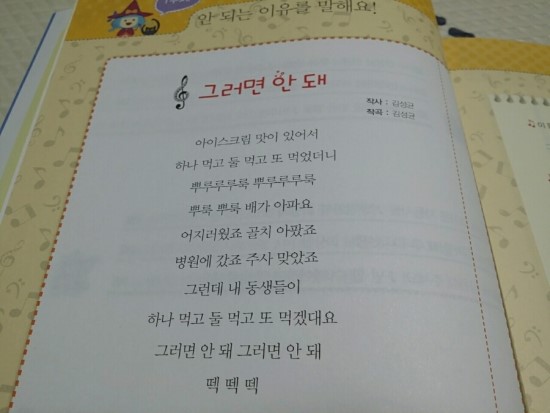 안 되는 이유를 말해요!
그러면 안 돼
작사 : 김성균
작곡 : 김성균
아이스크림 맛이 있어서
하나 먹고 둘 먹고 또 먹었더니
뿌루루루룩 뿌루루루룩
뿌룩 뿌룩 배가 아파요
어지러웠죠 골치 아팠죠
병원에 갔죠 주사 맞았죠
그런데 내 동생들이
하나 먹고 둘 먹고 또 먹겠대요
그러면 안 돼 그러면 안 돼
떽 떽 떽